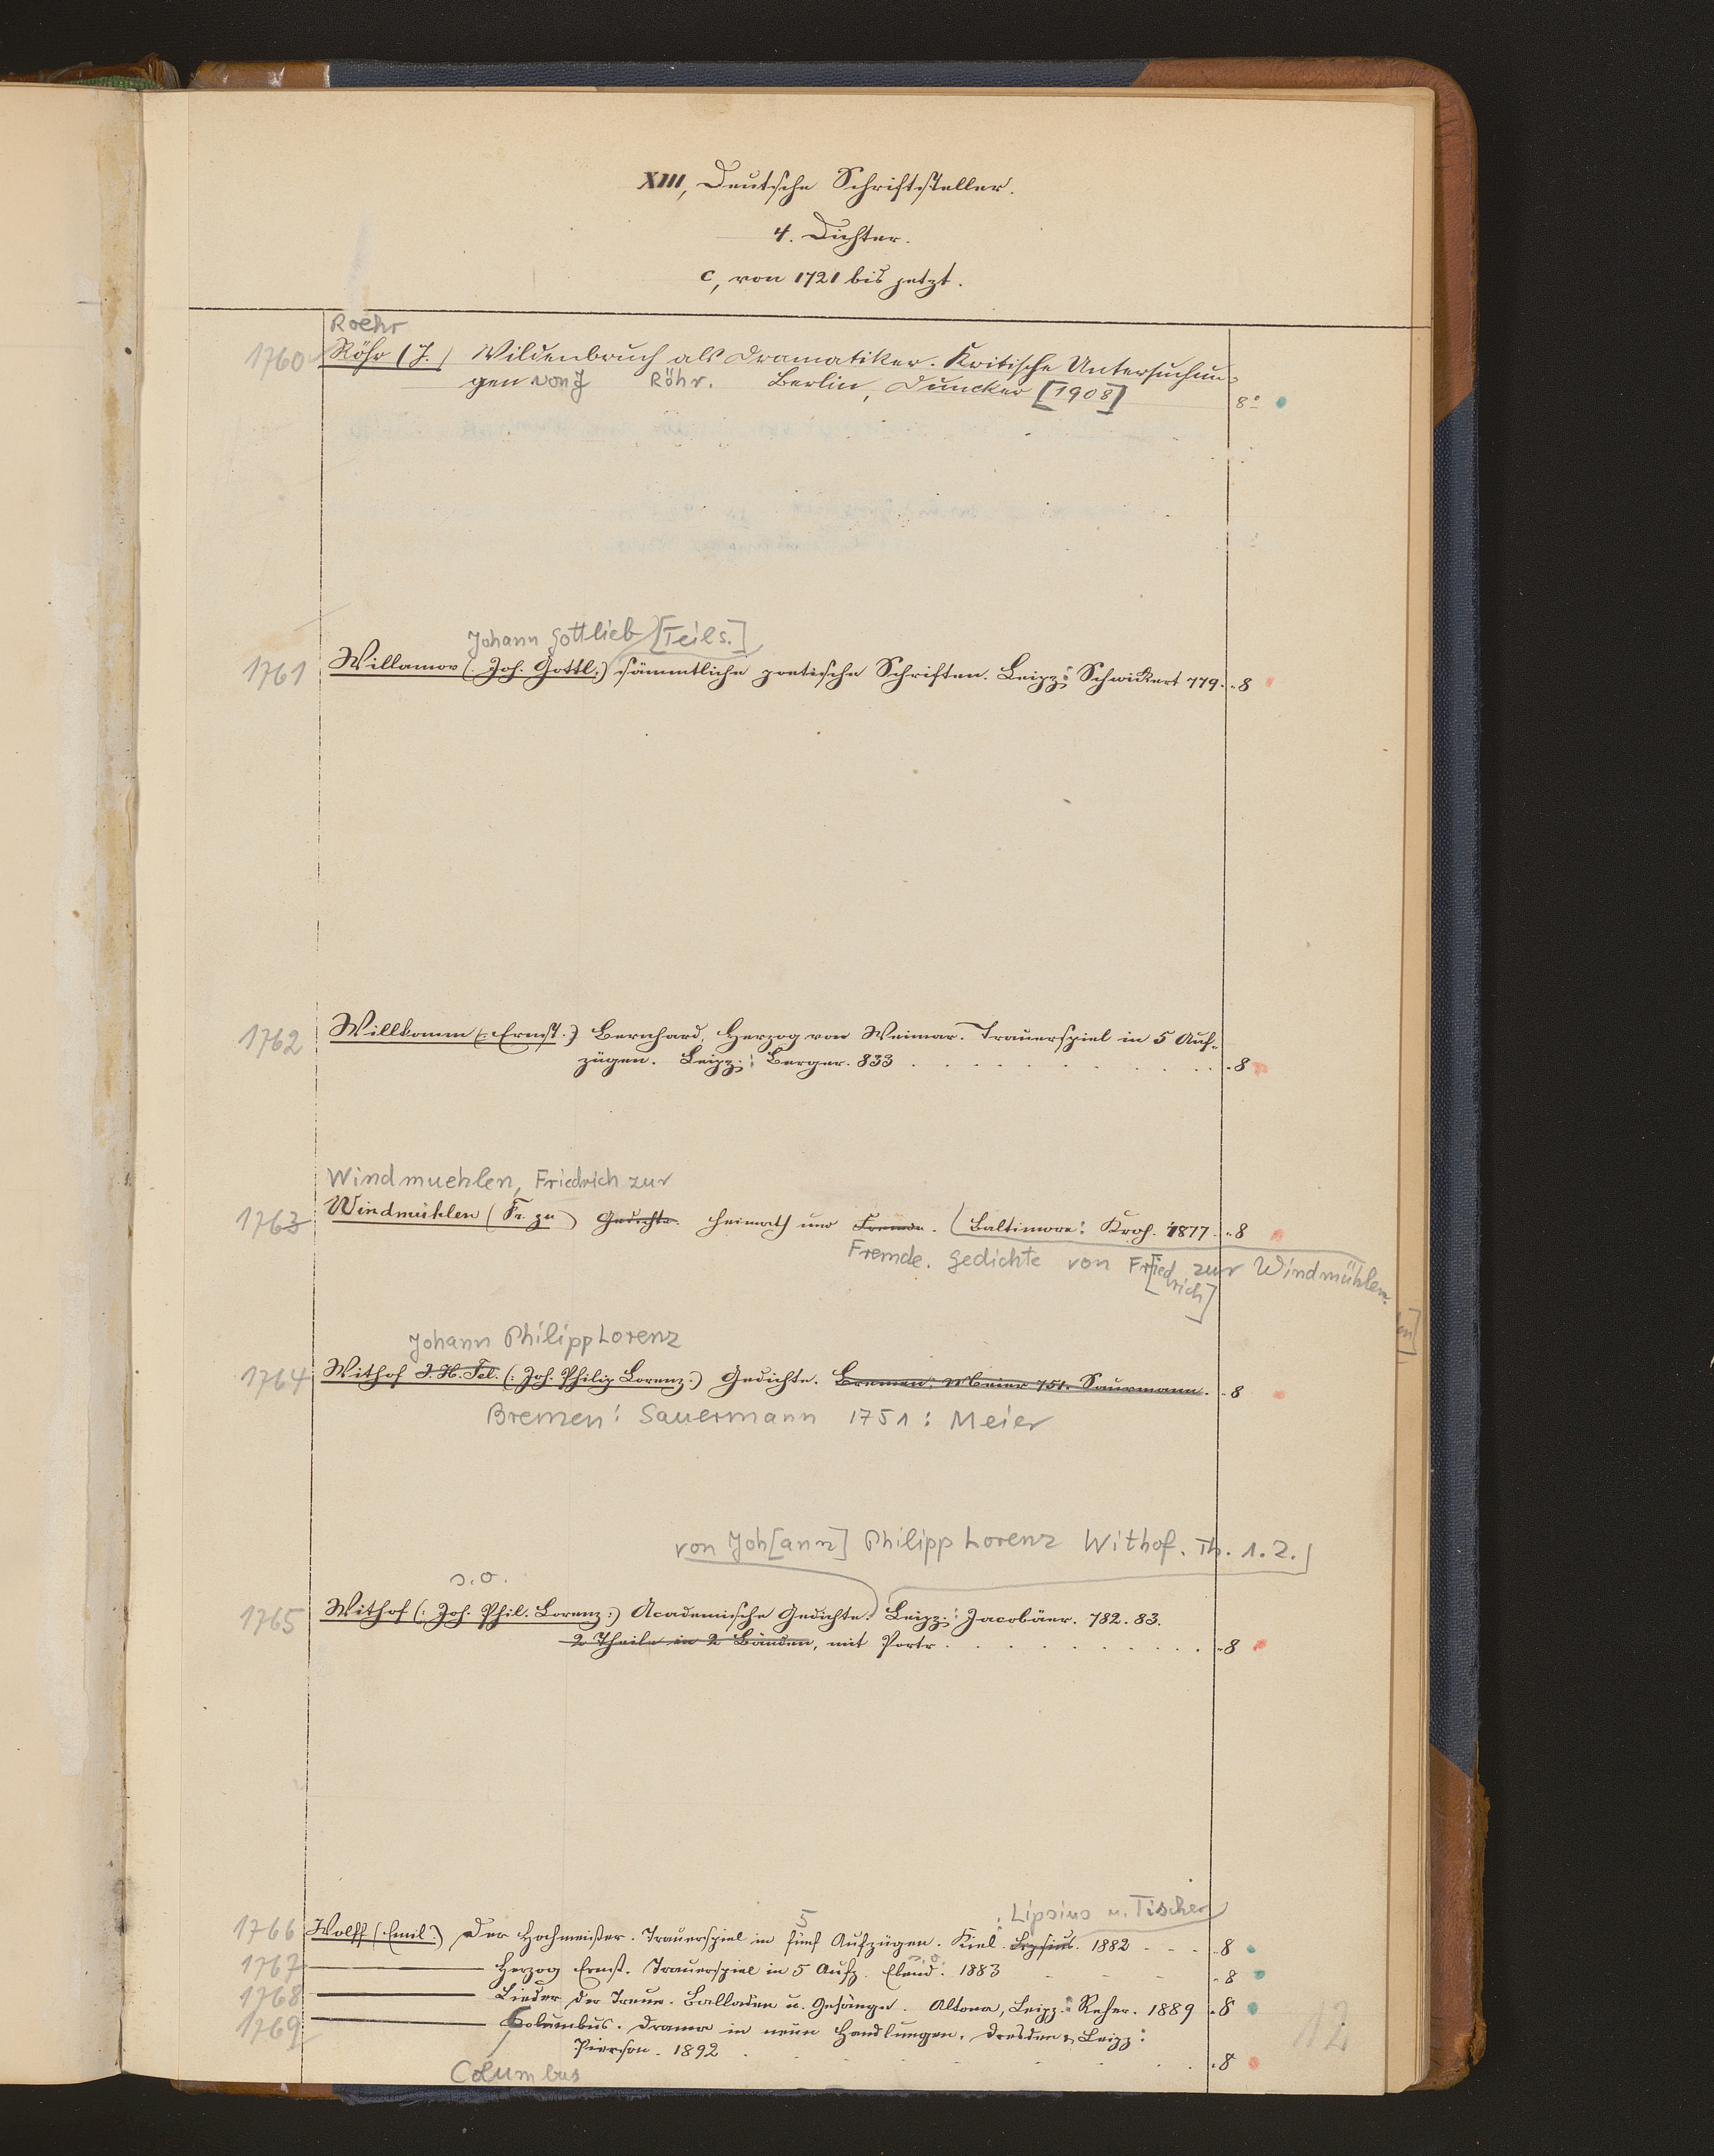 XIII, Deutsche Schriftsteller.
4. Dichter.
c, von 1721 bis jetzt.
Roehr
1760 Röhr (J.) Wildenbruch als Dramatiker. Kritische Untersuchun-
gen von J Röhr. Berlin, Duncker [1908] 8°
Johann Gottlieb [Teils.]
1761 Willamov (: Joh. Gottl:) sämmtliche poetische Schriften. Leipz: Schwickert 779. 8
1762 Willkomm (: Ernst:) Bernhard, Herzog von Weimar. Trauerspiel in 5 Auf-
zügen. Leipz: Berger. 833 . . . . . . . . . . . 8
Windmuehlen, Friedrich zur
1763 Windmühlen (Fr. zu) Gedichte. Heimath und Fremde. Baltimore: Kroh. 1877. 8
Fremde. Gedichte von Fried[rich] zur Windmühlen.
Johann Philipp Lorenz
1764 Withof J. H. Fel. (: Joh. Philip Lorenz:) Gedichte. Bremen: Meier 751. Saurmann. 8
Bremen: Sauermann 1751: Meier
von Joh[ann] Philipp Lorenz Withof. Th. 1.2.
s. o.
1765 Withof (: Joh. Phil. Lorenz:) Academische Gedichte. Leipz: Jacobäer. 782. 83.
2 Theile in 2 Bänden, mit Portr . . . . . . . . . . . 8
5 : Lipsius u. Tischer
1766 Wolff (Emil:) Der Hochmeister. Trauerspiel in fünf Aufzügen. Kiel. Lipsius. 1882 - - - 8
s. o.
1767 ——— Herzog Ernst. Trauerspiel in 5 Aufz. Ebend. 1883 - - - 8
1768 ——— Lieder der Treue. Balladen u. Gesänge. Altona, Leipz: Reher. 1889 8
1769 ——— Columbus. Drama in neun Handlungen. Dresden & Leipz:
Pierson. 1892 . . . . . . . . 8
Columbus
12